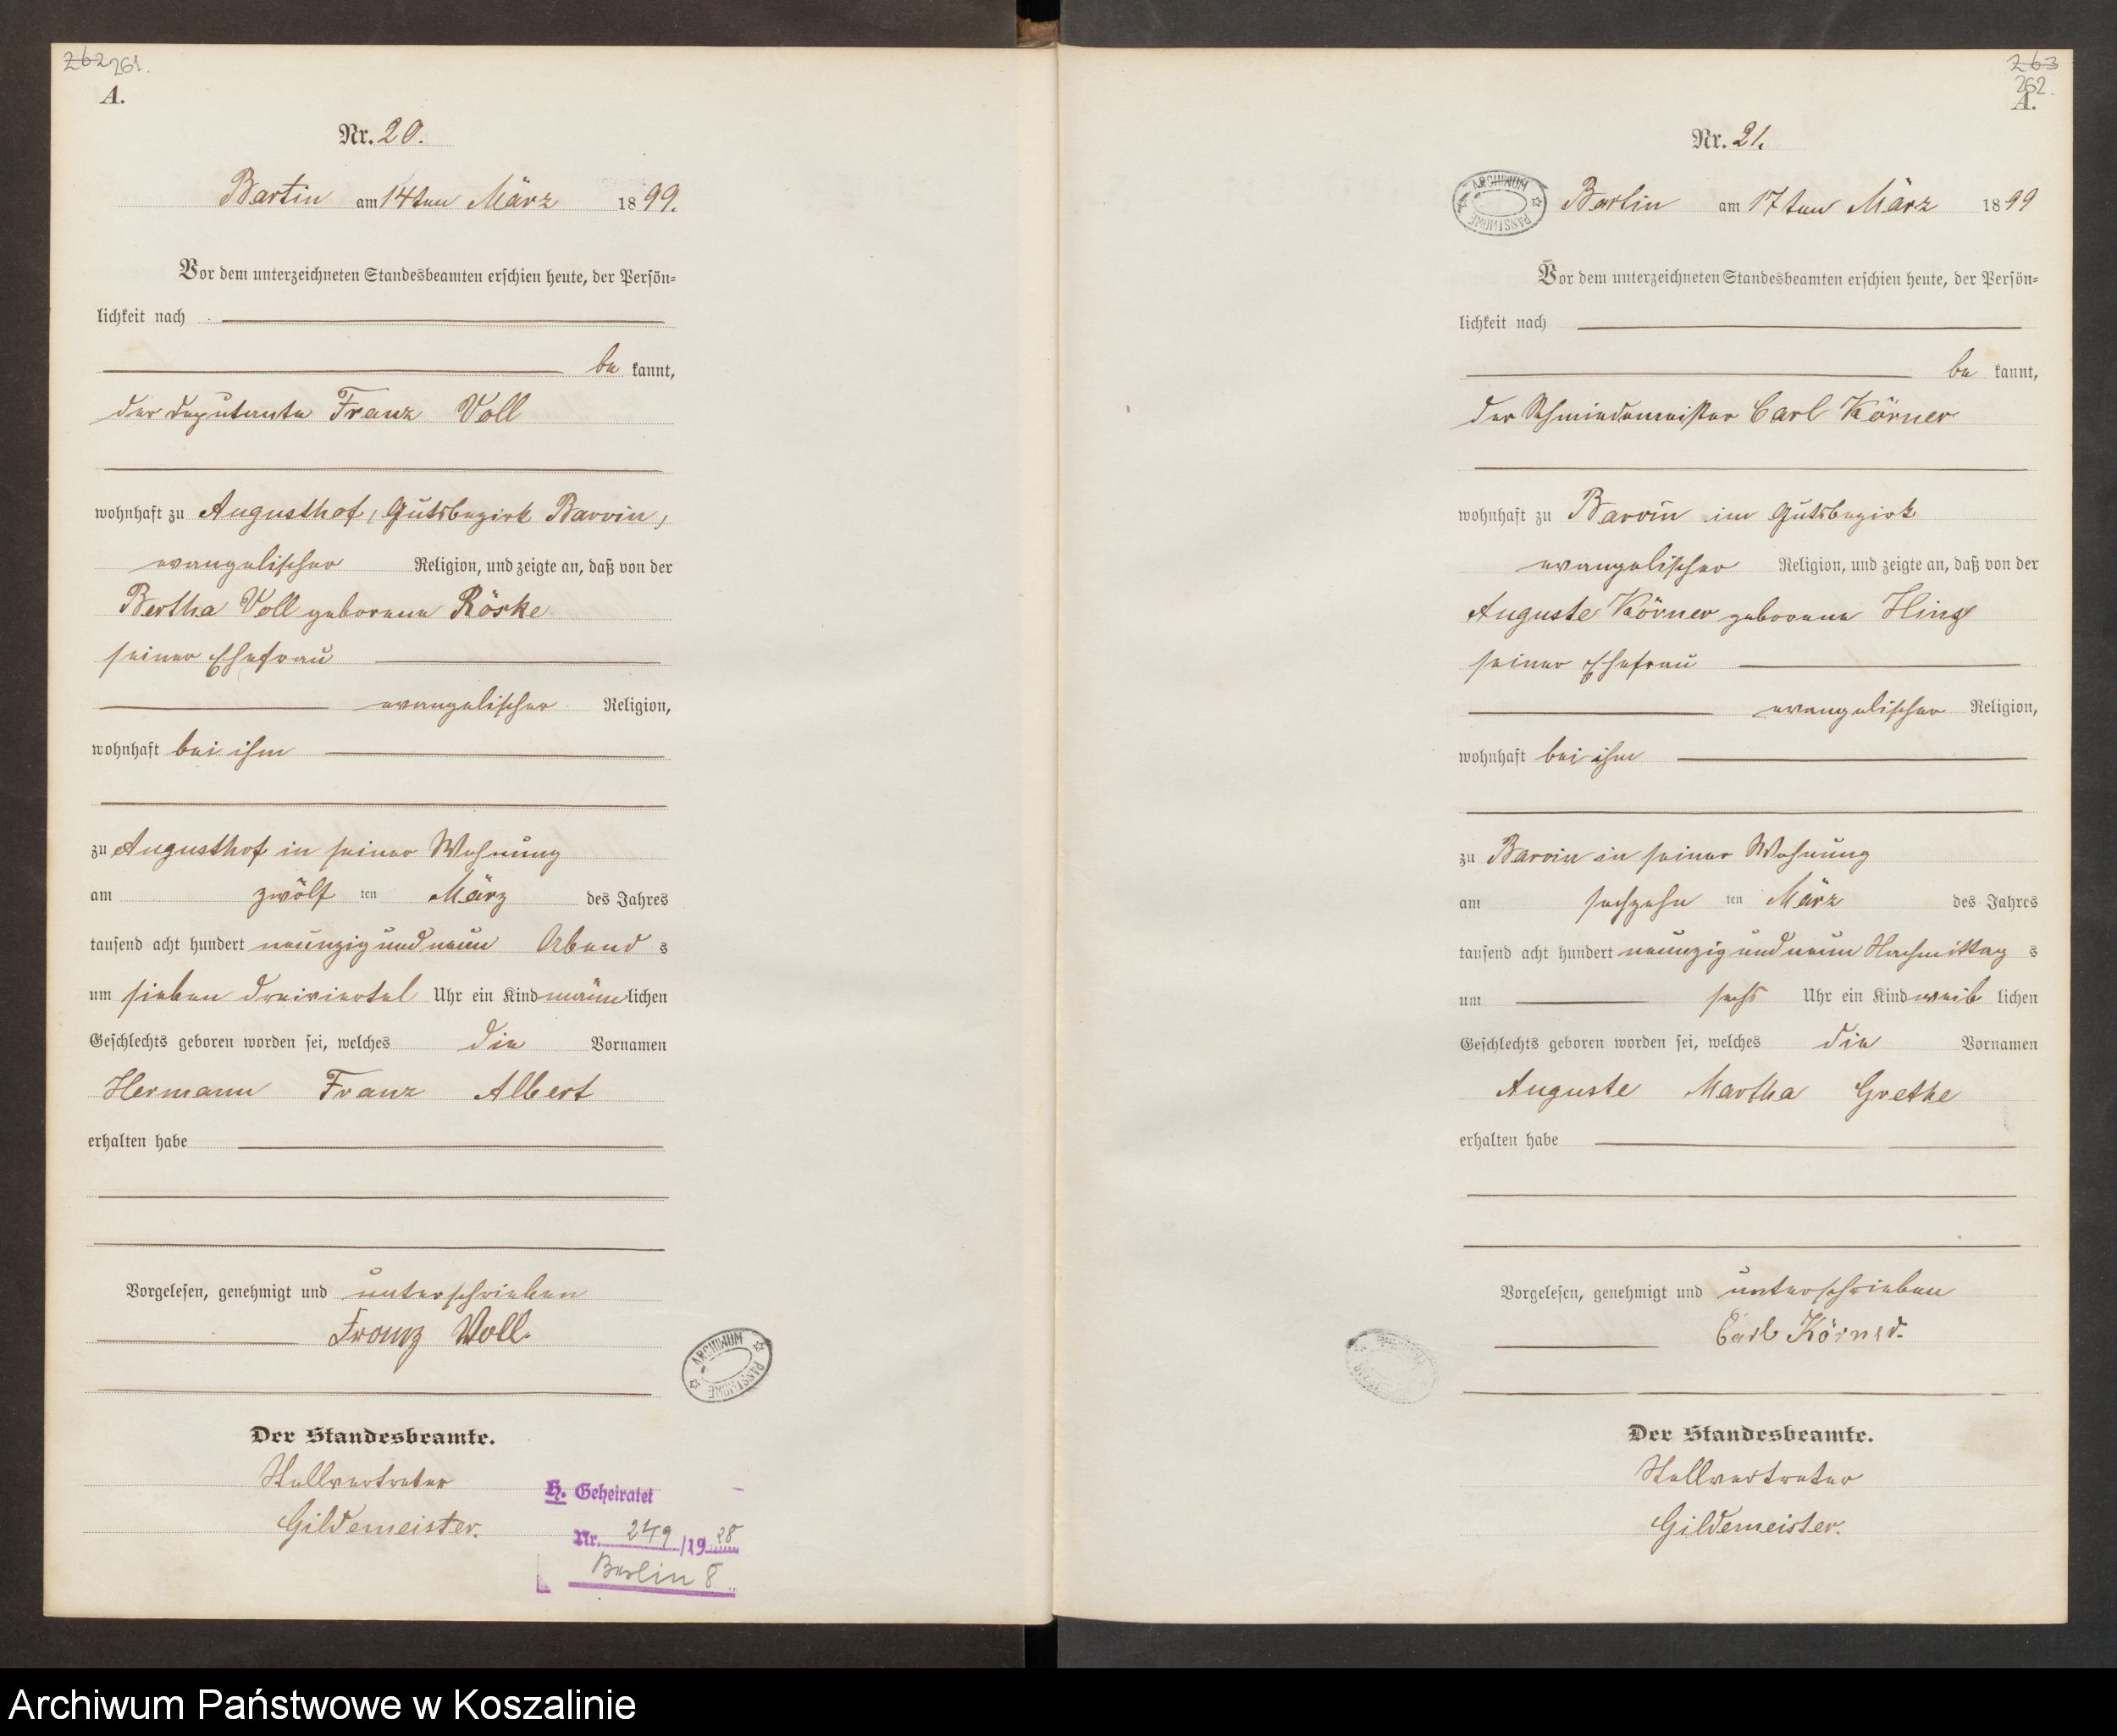 262 261.
A.
Nr. 20.
Bartin am 14ten März 1899.
Vor dem unterzeichneten Standesbeamten erschien heute, der Persön-
lichkeit nach
be kannt,
der Deputante Franz Voll
wohnhaft zu Augusthof, Gutsbezirk Barvin,
evangelischer Religion, und zeigte an, daß von der
Bertha Voll geborene Röske
seiner Ehefrau
evangelischer Religion,
wohnhaft bei ihm
zu Augusthof in seiner Wohnung
am zwölf ten März des Jahres
tausend acht hundert neunzig und neun Abend s
um sieben dreiviertel Uhr ein Kind männlichen
Geschlechts geboren worden sei, welches die Vornamen
Hermann Franz Albert
erhalten habe
Vorgelesen, genehmigt und unterschrieben
Franz Voll.
ARCHIWUM PAŃSTWOWE
Der Standesbeamte.
Stellvertreter
Gildemeister.
H. Geheiratet
Nr. 249/1928
Berlin 8
263
262.
A.
Nr. 21.
ARCHIWUM PAŃSTWOWE
Bartin am 17ten März 1899
Vor dem unterzeichneten Standesbeamten erschien heute, der Persön-
lichkeit nach
be kannt,
der Schmiedemeister Carl Körner
wohnhaft zu Barvin im Gutsbezirk
evangelischer Religion, und zeigte an, daß von der
Auguste Körner geborene Hinz
seiner Ehefrau
evangelischer Religion,
wohnhaft bei ihm
zu Barvin in seiner Wohnung
am sechzehn ten März des Jahres
tausend acht hundert neunzig und neun Nachmittag s
um sechs Uhr ein Kind weib lichen
Geschlechts geboren worden sei, welches die Vornamen
Auguste Martha Grethe
erhalten habe
Vorgelesen, genehmigt und unterschrieben
Carl Körner.
Der Standesbeamte.
Stellvertreter
Gildemeister.
Archiwum Państwowe w Koszalinie